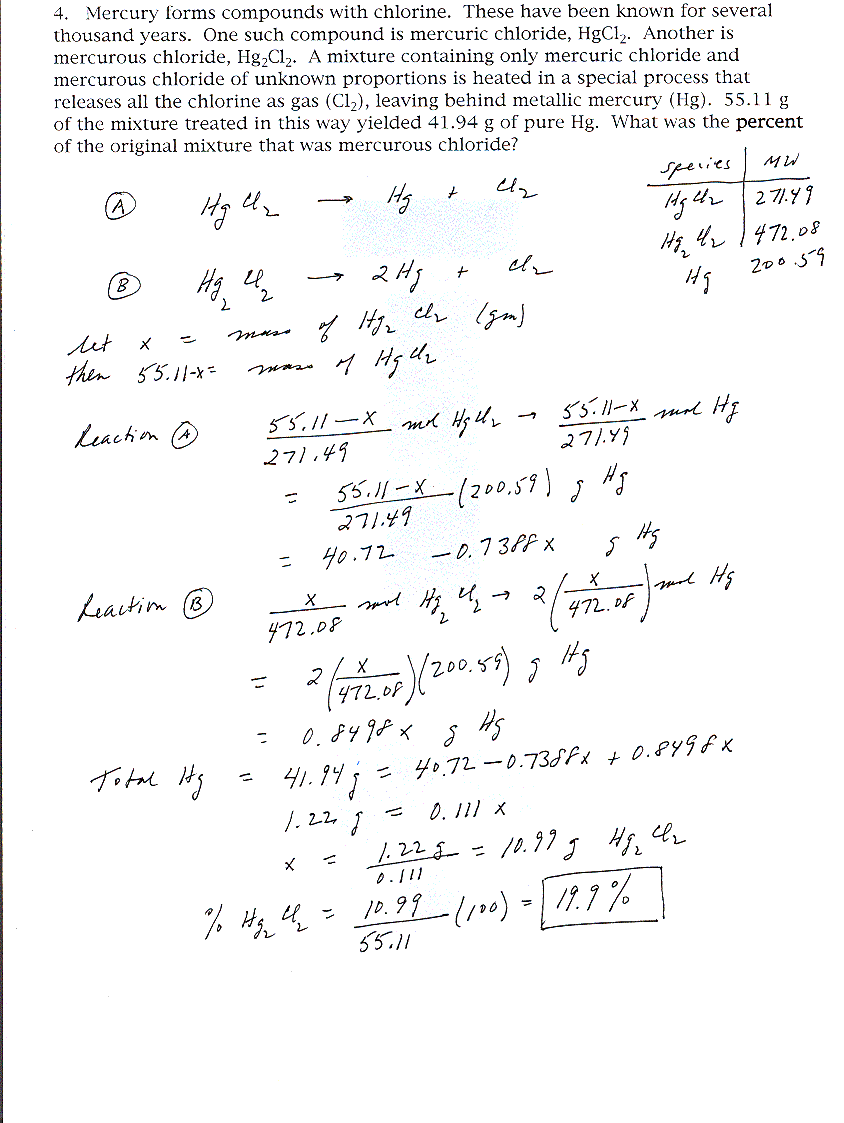 4. Mercury forms compounds with chlorine. These have been known for several
thousand years. One such compound is mercuric chloride, HgCl₂. Another is
mercurous chloride, Hg₂Cl₂. A mixture containing only mercuric chloride and
mercurous chloride of unknown proportions is heated in a special process that
releases all the chlorine as gas (Cl₂), leaving behind metallic mercury (Hg). 55.11 g
of the mixture treated in this way yielded 41.94 g of pure Hg. What was the percent
of the original mixture that was mercurous chloride?
species | MW
HgCl₂ | 271.49
Hg₂Cl₂ | 472.08
Hg 200.59
(A) HgCl₂ → Hg + Cl₂
(B) Hg₂Cl₂ → 2Hg + Cl₂
let x = mass of Hg₂Cl₂ (gm)
then 55.11-x = mass of HgCl₂
Reaction (A) 55.11-x/271.49 mol HgCl₂ → 55.11-x/271.49 mol Hg
= 55.11-x/271.49 (200.59) g Hg
= 40.72 - 0.7388x g Hg
Reaction (B) x/472.08 mol Hg₂Cl₂ → 2(x/472.08) mol Hg
= 2(x/472.08)(200.59) g Hg
= 0.8498x g Hg
Total Hg = 41.94 g = 40.72 - 0.7388x + 0.8498x
1.22 g = 0.111 x
x = 1.22 g/0.111 = 10.99 g Hg₂Cl₂
% Hg₂Cl₂ = 10.99/55.11 (100) = 19.9%